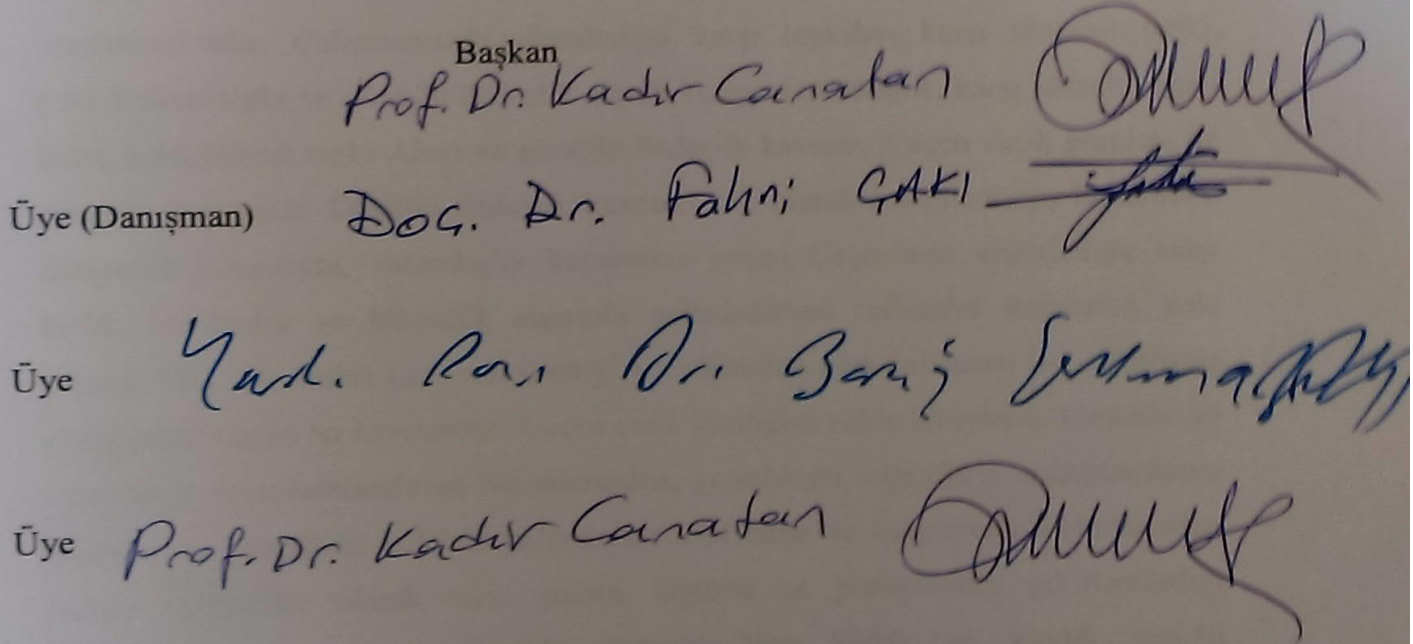 Başkan
Prof. Dr. Kadir Canatan
Üye (Danışman) Doç. Dr. Fahri ÇAKI
Üye Yard. Doç. Dr. Barış
Üye Prof. Dr. Kadir Canatan